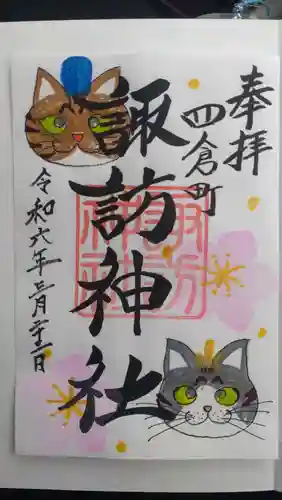 奉拝
四倉町
諏訪神社
令和六年三月二十二日
諏訪
神社